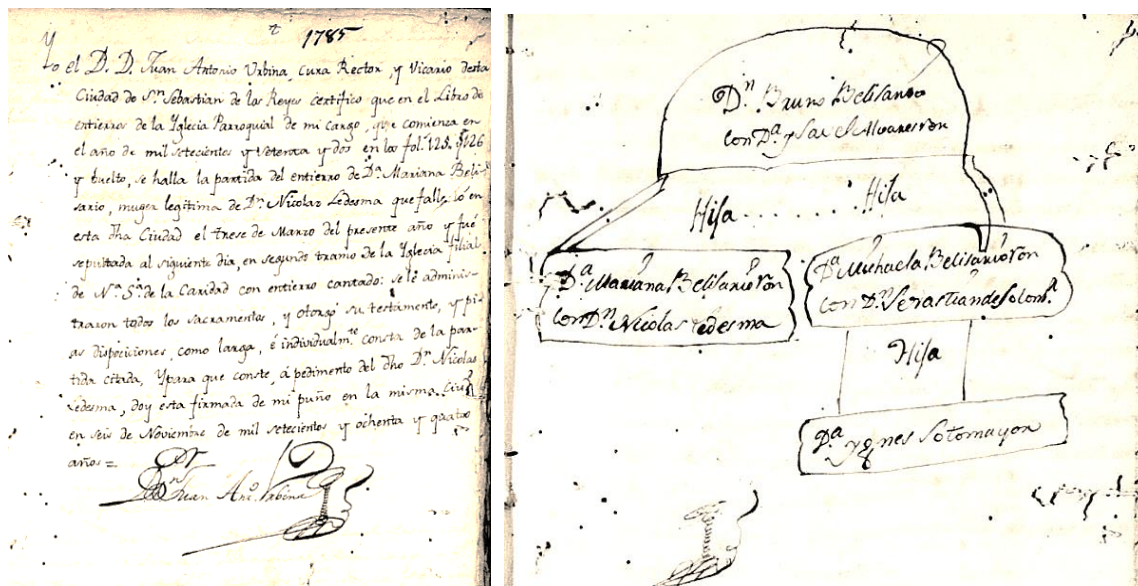 1785
Yo el D. D. Juan Antonio Urbina, cura Rector, y Vicario desta
Ciudad de Sn. Sebastian de los Reyes certifico que en el Libro de
entierros de la Yglecia Parroquial de mi cargo, que comienza en
el año de mil setecientos y setenta y dos en los fol.s 125. y 126
y buelto, se halla la partida del entierro de Da. Mariana Beli-
sario, muger legitima de Dn. Nicolas Ledesma que falleció en
esta dha Ciudad el trese de Marzo del presente año y fué
sepultada al siguiente dia, en segundo tramo de la Yglecia filial
de Na. Sa. de la Caridad con entierro cantado: se le adminis-
traron todos los sacramentos, y otorgó su testamento, y pi-
as disposiciones, como larga, é individualmte. consta de la par-
tida citada, Ypara que conste, á pedimento del dho Dn. Nicolas
Ledesma, doy esta firmada de mi puño en la misma Ciud.
en seis de Noviembre de mil setecientos y ochenta y quatro
años =
Juan Anto. Urbina
Dn. Bruno Belisario
con Da. Ysavel Alvares
Hija . . . . . . . . Hija
Da. Mariana Belisario
con Dn. Nicolas Ledesma
Da. Michaela Belisario
con Dn. Sevastian de Sotom.r
Hija
Da. Ygnes Sotomayor